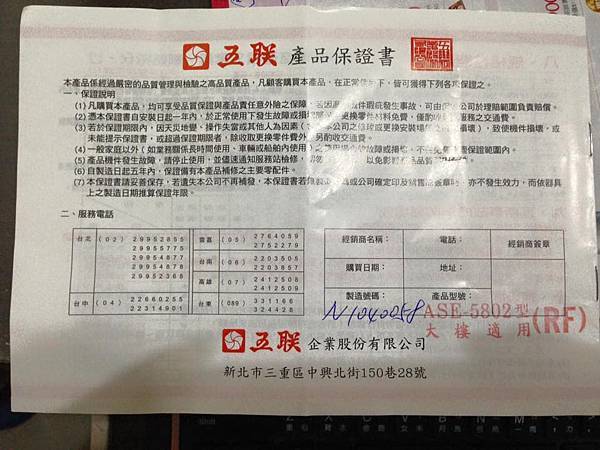 五联 產品保證書
本產品係經過嚴密的品質管理與檢驗之高品質產品，凡顧客購買本產品，在正常使用下，皆可獲得下列各項保證之。
一、保證說明
(1) 凡購買本產品，均可享受品質保證與產品責任意外險之保障，若因產品
瑕疵發生事故，可由
公司於理賠範圍負責賠償。
(2) 憑本保證書自安裝日起一年內，於正常使用下發生故障或損
更換零件材料免費，僅酌
服務之交通費。
(3) 若於保證期限內，因天災地變、操作失當或其他人為因素（
本公司之修理或更換安裝場
損壞），致使機件損壞，或
未能提示保證書，或超過保證期限者，除收取更換零件費外，另酌收交通費。
(4) 一般家庭以外（如業務關係長時間使用、車輛或船舶內使用）之
故障或損壞，不在免
保證範圍內。
(5) 產品機件發生故障，請停止使用，並儘速通知服務站檢修，切勿
以免影響
產品品質
(6) 自製造日起五年內，保證備有本產品修補之主要零配件。
(7) 本保證書請妥善保存，若遺失本公司不再補發，本保證書若無
或公司確定印及
簽章時，亦不發生效力，而依器具
上之製造日期推算保證年限。
二、服務電話
台北 (02) 29952855
29955775
29954877
29954878
29952368
台中 (04) 22660255
22314901
嘉義 (05) 2764059
2752279
台南 (06) 2203505
2203857
高雄 (07) 2412508
2412509
台東 (089) 331166
324428
經銷商名稱： 電話： 經銷商簽章
購買日期： 地址：
製造號碼： 產品型號：
N1040058 ASE-5802型
大樓適用 (RF)
五联 企業股份有限公司
新北市三重區中興北街150巷28號
Z X C V B N M